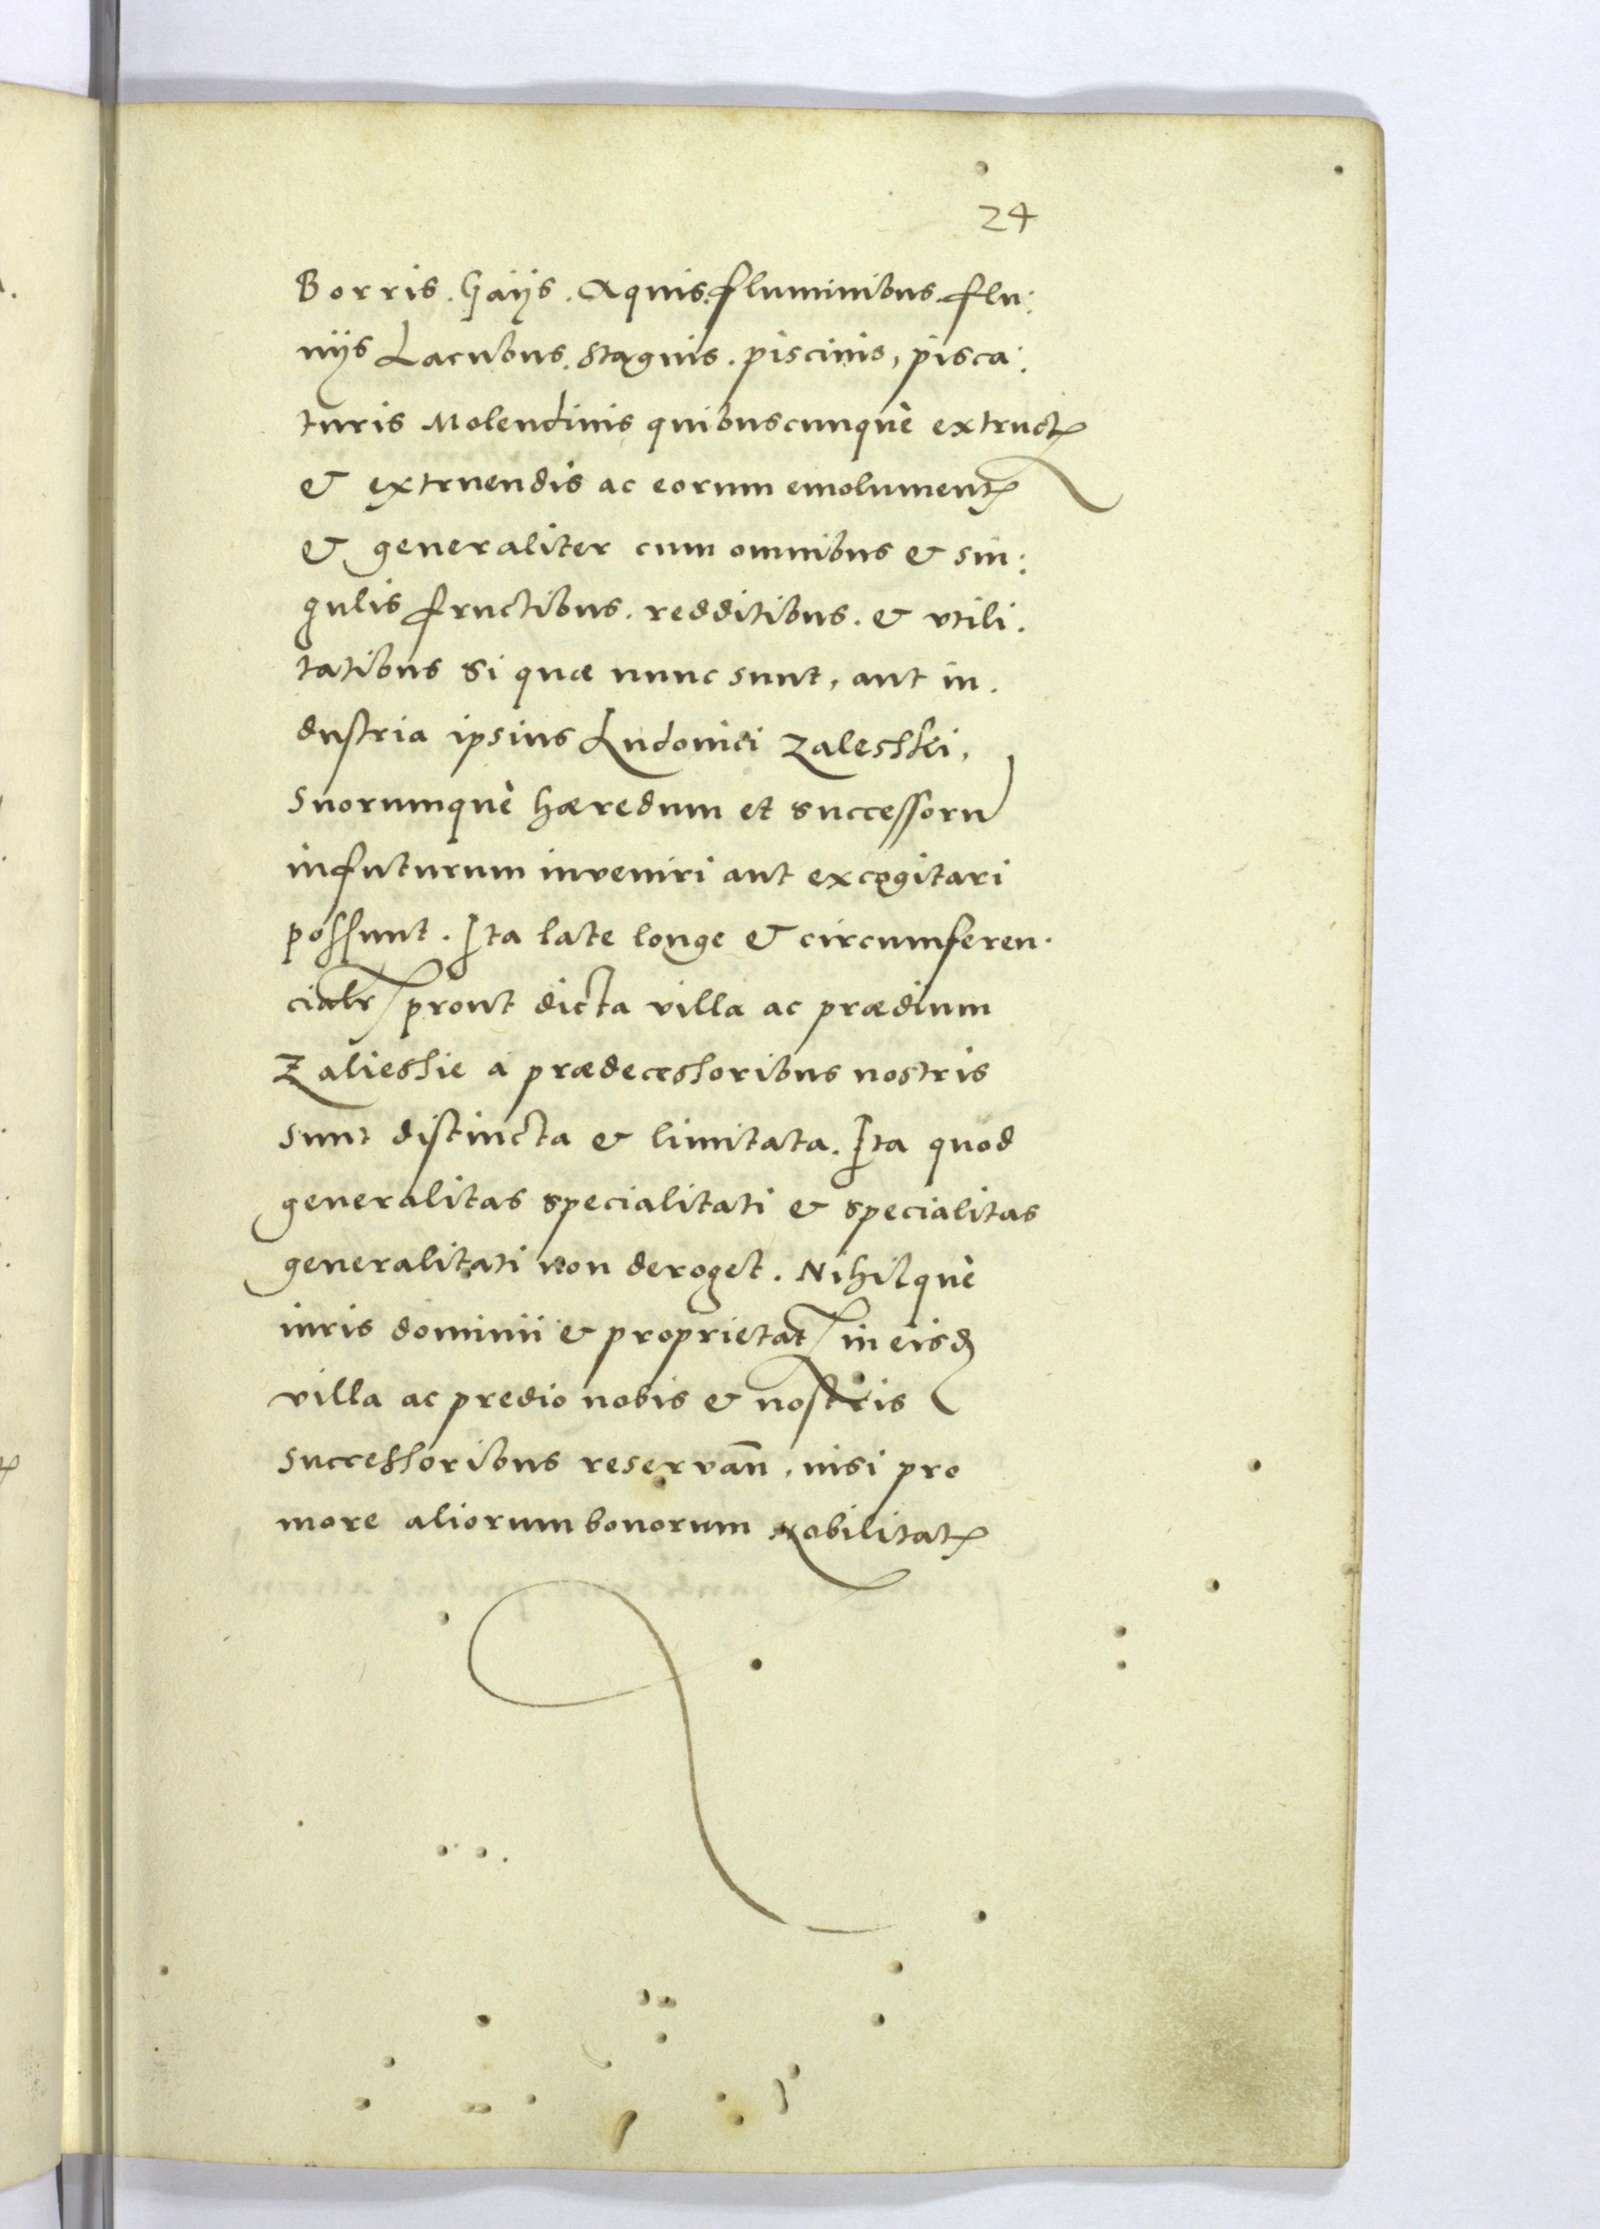 24
Borris. Gaijs. Aquis. fluminibus. flu:
uijs Lacubus. Stagnis. piscinis, pisca:
turis Molendinis quibuscunquè extruct
& extruendis ac eorum emolument
& generaliter cum omnibus & sin:
gulis fructibus. redditibus. & vtili.
tatibus si quæ nunc sunt, aut in.
dustria ipsius Ludouici Zalesski,
suorumquè hæredum et successoru
in futurum inveniri aut excogitari
possunt. Ita late longe & circumferen.
cialr prout dicta villa ac prædium
Zaliessie à prædecessoribus nostris
sunt distincta & limitata. Ita quod
generalitas specialitati & specialitas
generalitati non deroget. Nihilquè
iuris dominii & proprietat in eisd
villa ac predio nobis & nostris
successoribus reservan̄, nisi pro
more aliorum bonorum Nobilitat